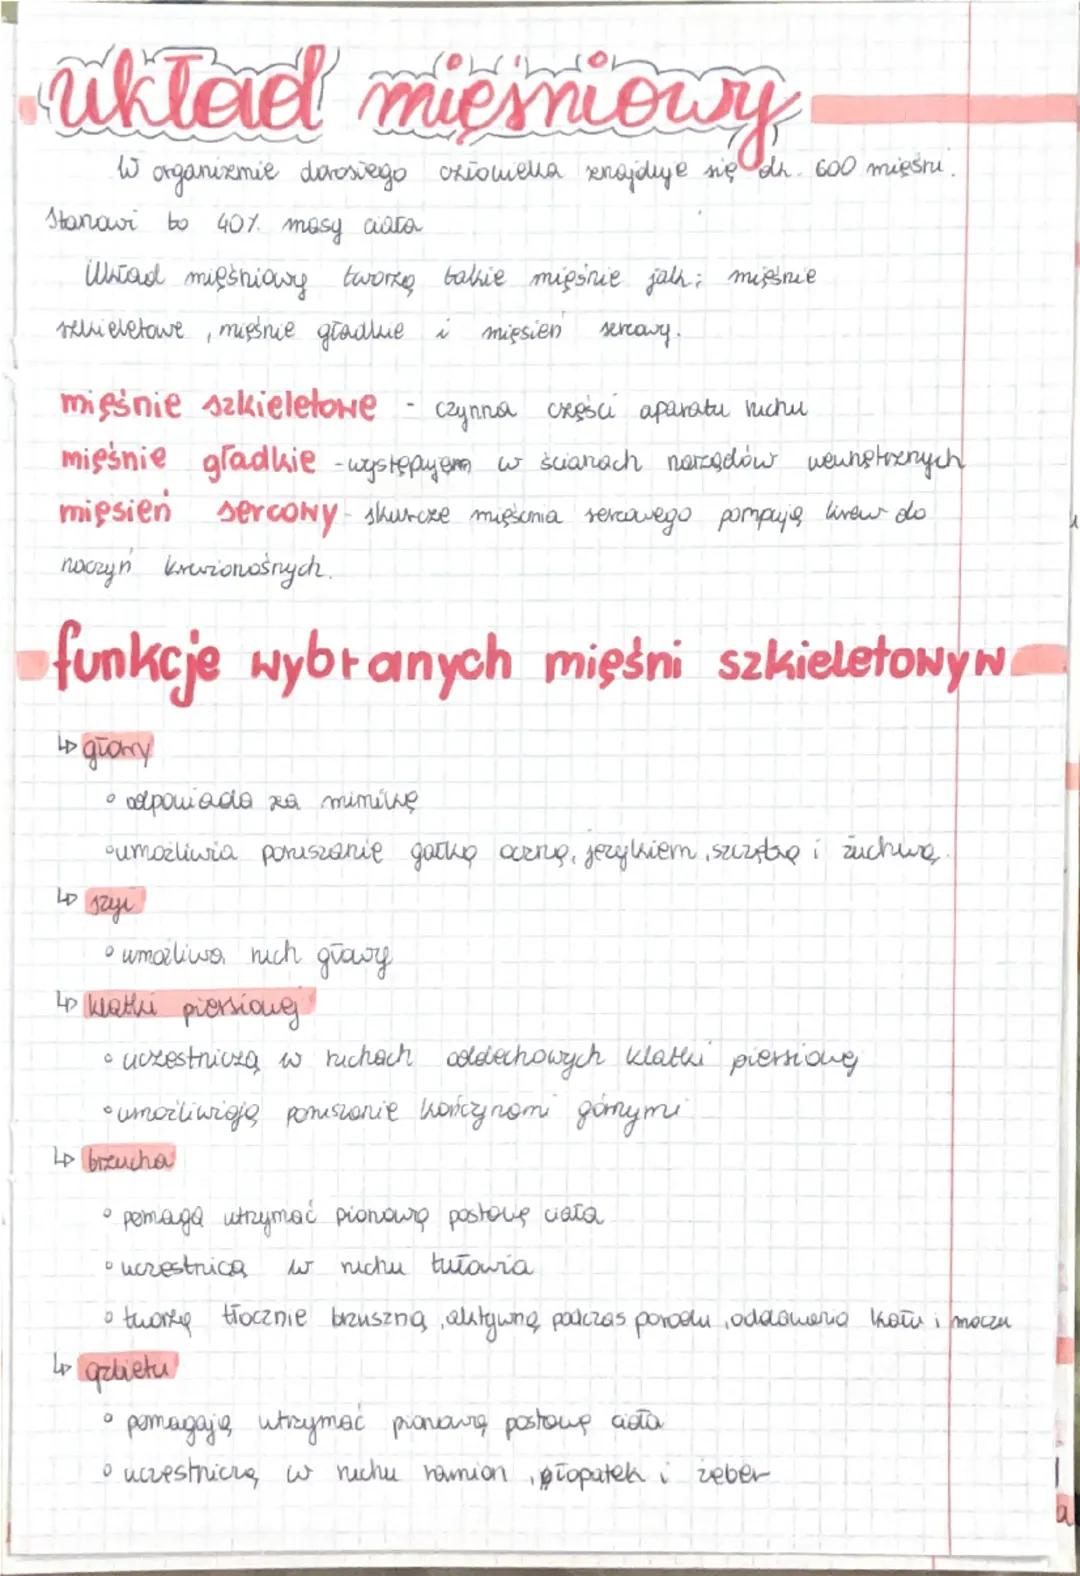 układ mięśniowy
W organizmie dorosłego człowieka znajduje się ok. 600 mięśni.
Stanowi to 40% masy ciała
Układ mięśniowy tworzą takie mięśnie jak: mięśnie
szkieletowe, mięśnie gładkie i mięsień sercowy.
mięśnie szkieletowe - czynna części aparatu ruchu
mięśnie gładkie - występujem w ścianach narządów wewnętrznych
mięsień sercowy - skurcze mięśnia sercowego pompują krew do
naczyń krwionośnych.
funkcje wybranych mięśni szkieletowyw
↳ głowy
° odpowiada za mimikę
° umożliwia poruszanie gałką oczną, językiem, szczęką i żuchwą.
↳ szyi
° umożliwa ruch głowy
↳ klatki piersiowej
° uczęstniczą w ruchach oddechowych klatki piersiowej
° umożliwiają poruszanie kończynami górnymi
↳ brzucha
° pomagą utrzymać pionową postawę ciała
° uczęstnicą w ruchu tułowia
° tworzą tłocznie brzuszną, aktywną podczas porodu, oddawania kału i moczu
↳ grzbietu
° pomagają utrzymać pionową postawę ciała
° uczęstniczą w ruchu ramion, łopatek i żeber